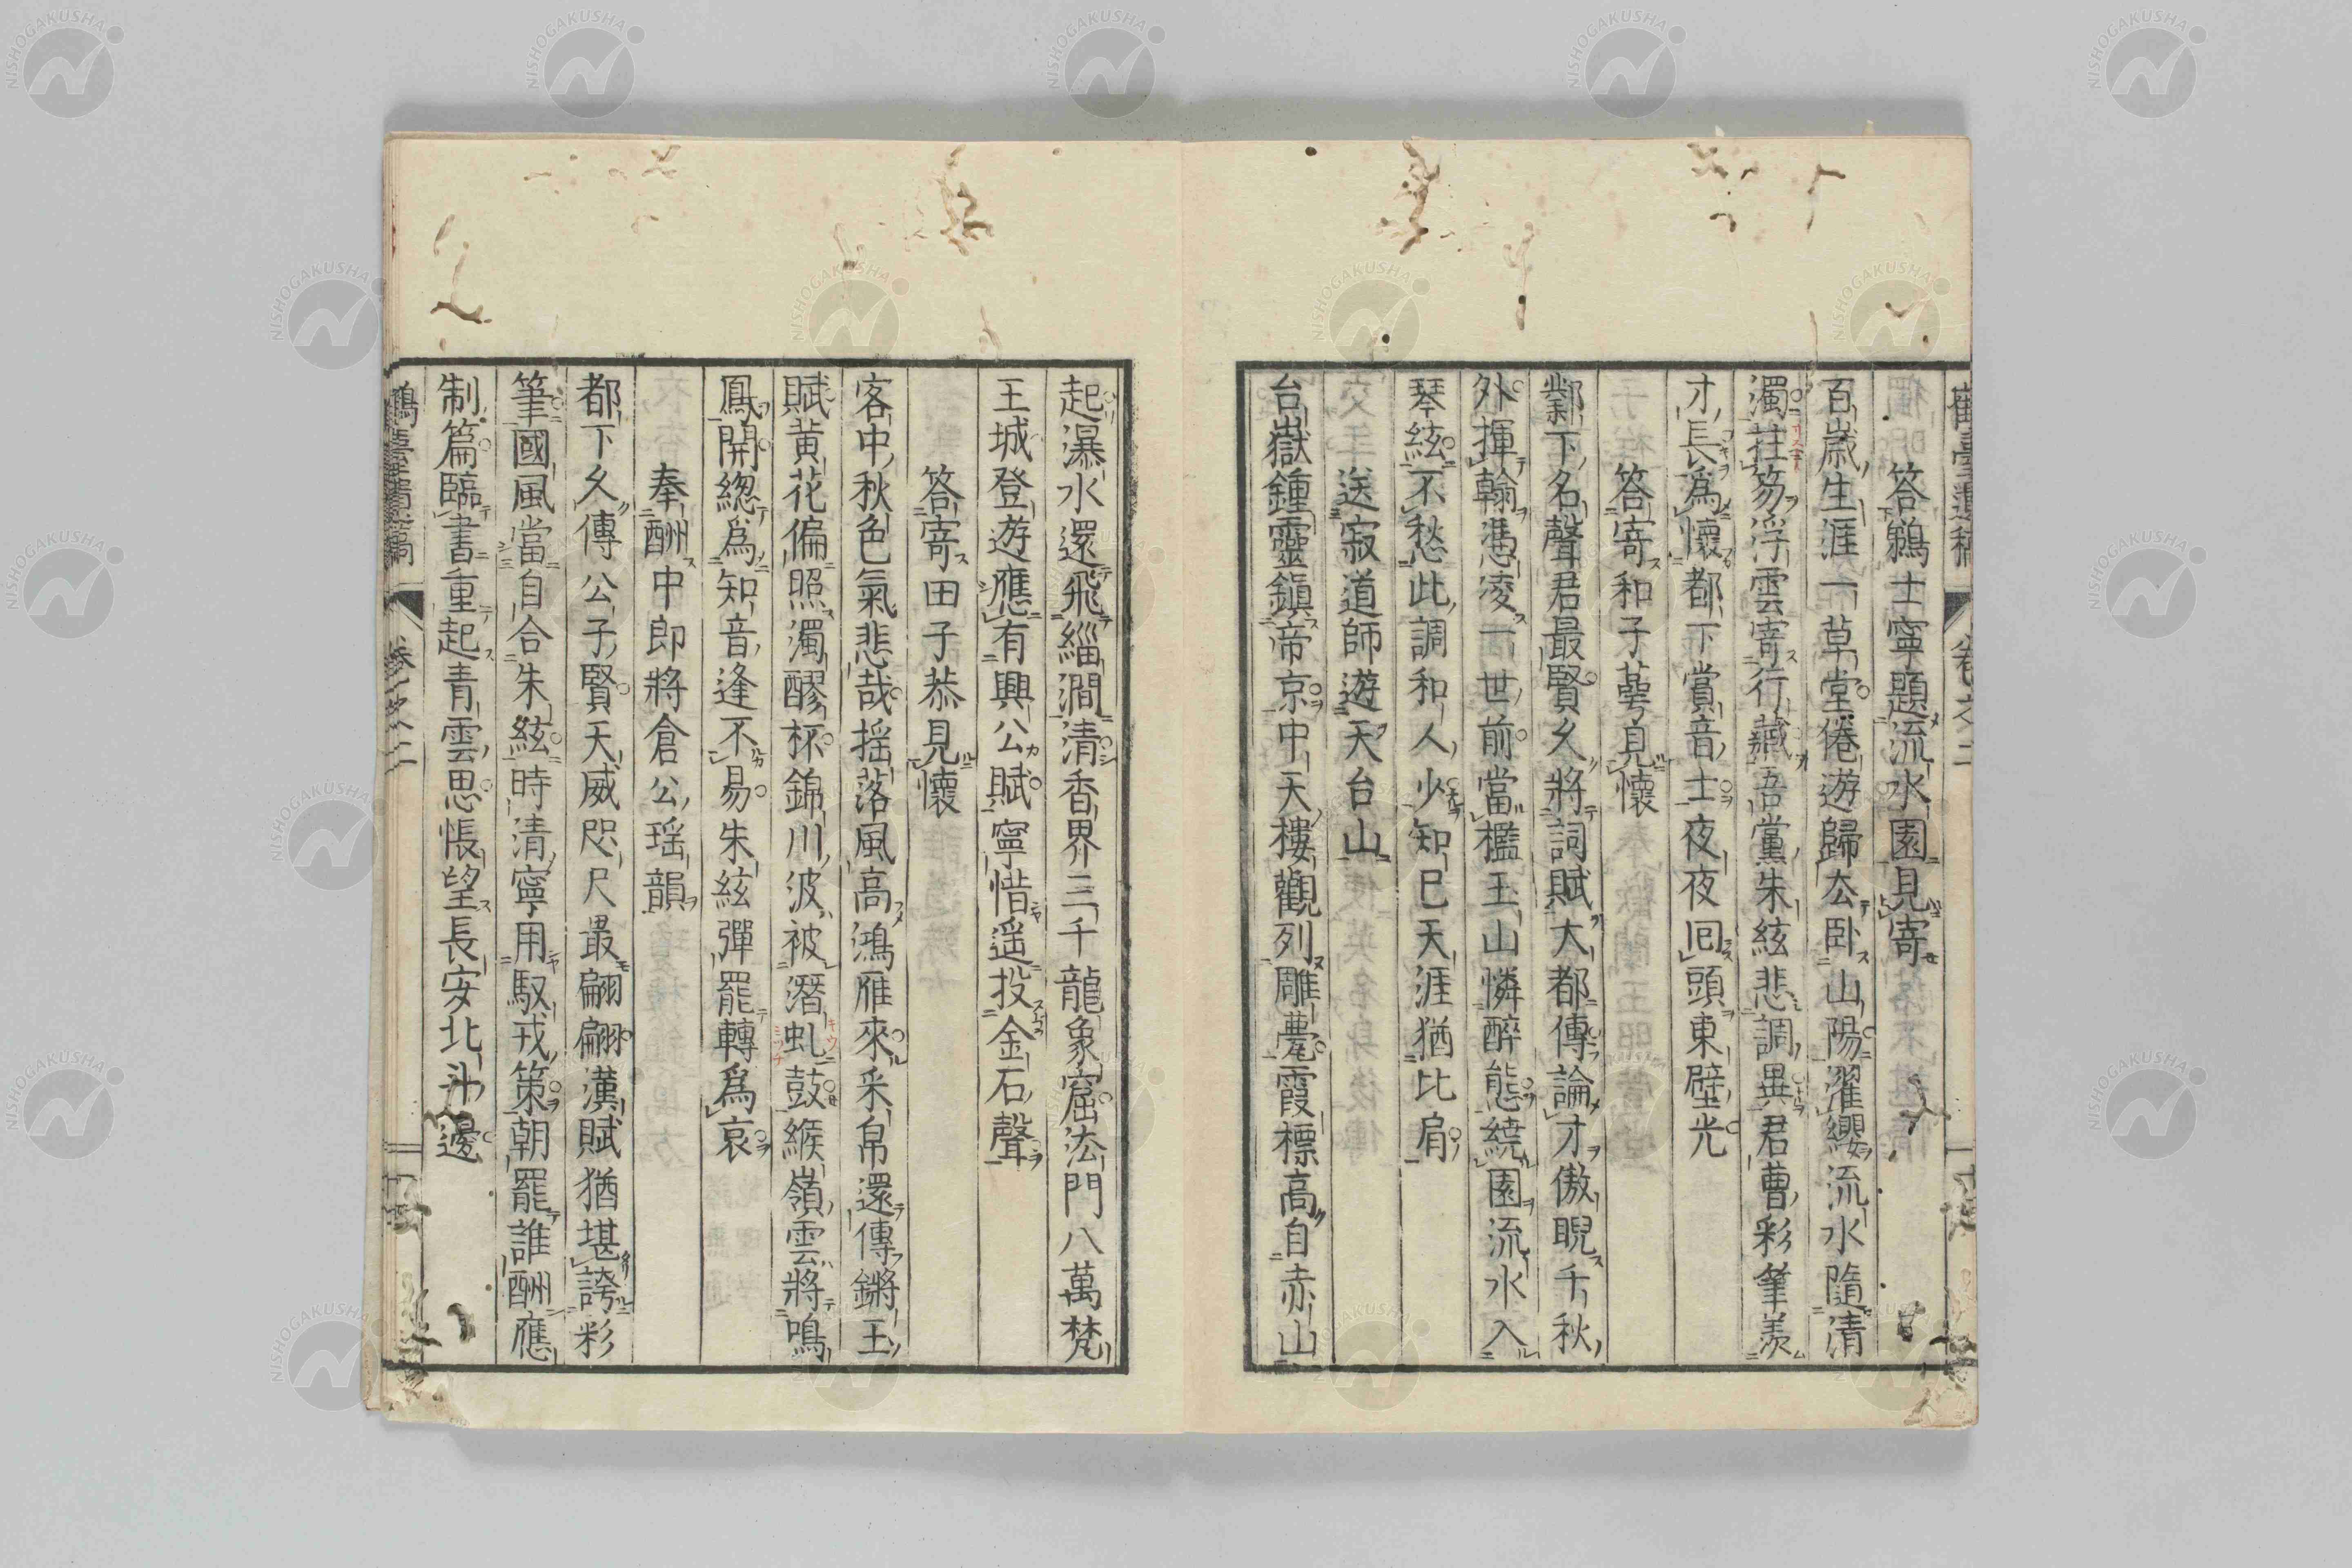 答鵜士寧題流水園見寄
百歲生涯一草堂倦遊歸去臥山陽濯纓流水隨清
濁拄笏浮雲寄行藏吾黨朱絃悲調異君曹彩筆羨
才長爲懷都下賞音士夜夜回頭東壁光
答寄和子萼見懷
鄴下名聲君最賢久將詞賦大都傳論才傲睨千秋
外揮翰憑凌一世前當檻玉山憐醉態繞園流水入
琴絃不愁此調和人少知已天涯猶比肩
送寂道師遊天台山
台嶽鍾靈鎭帝京中天樓觀列雕甍霞標高自赤山
起瀑水還飛緇澗清香界三千龍象窟法門八萬梵
王城登遊應有興公賦寧惜遥投金石聲
答寄田子恭見懷
客中秋色氣悲哉揺落風高鴻雁來釆帛還傳鏘玉
賦黄花偏照濁醪杯錦川波被潛虬鼓緱嶺雲將鳴
鳳開緫爲知音逢不易朱絃彈罷轉爲哀
奉酬中郎將倉公瑶韻
都下久傳公子賢天威咫尺最翩翩漢賦猶堪誇彩
筆國風當自合朱絃時清寧用馭戎策朝罷誰酬應
制篇臨書重起青雲思悵望長安北斗邊
鶴臺遺稿 卷之二